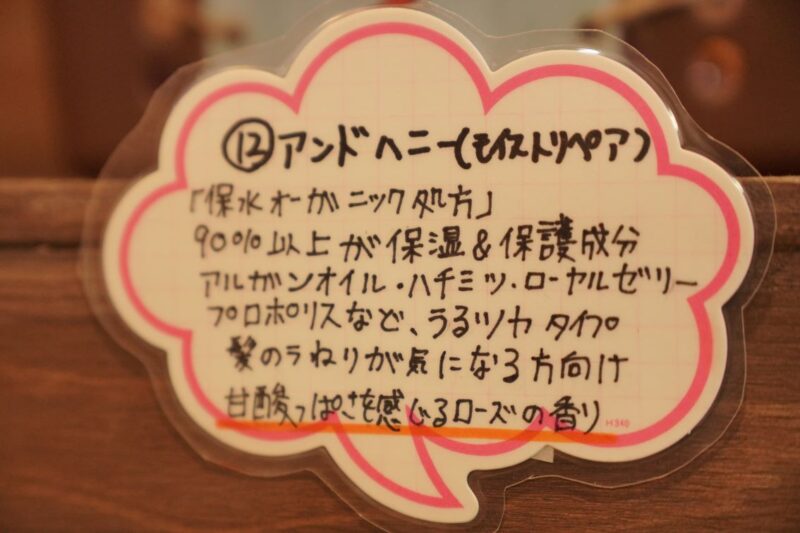 ⑫アンドハニー(モイストリペア)
「保水オーガニック処方」
90%以上が保湿&保護成分
アルガンオイル・ハチミツ・ローヤルゼリー
プロポリスなど、うるツヤタイプ
髪のうねりが気になる方向け
甘酸っぱさを感じるローズの香り
H340